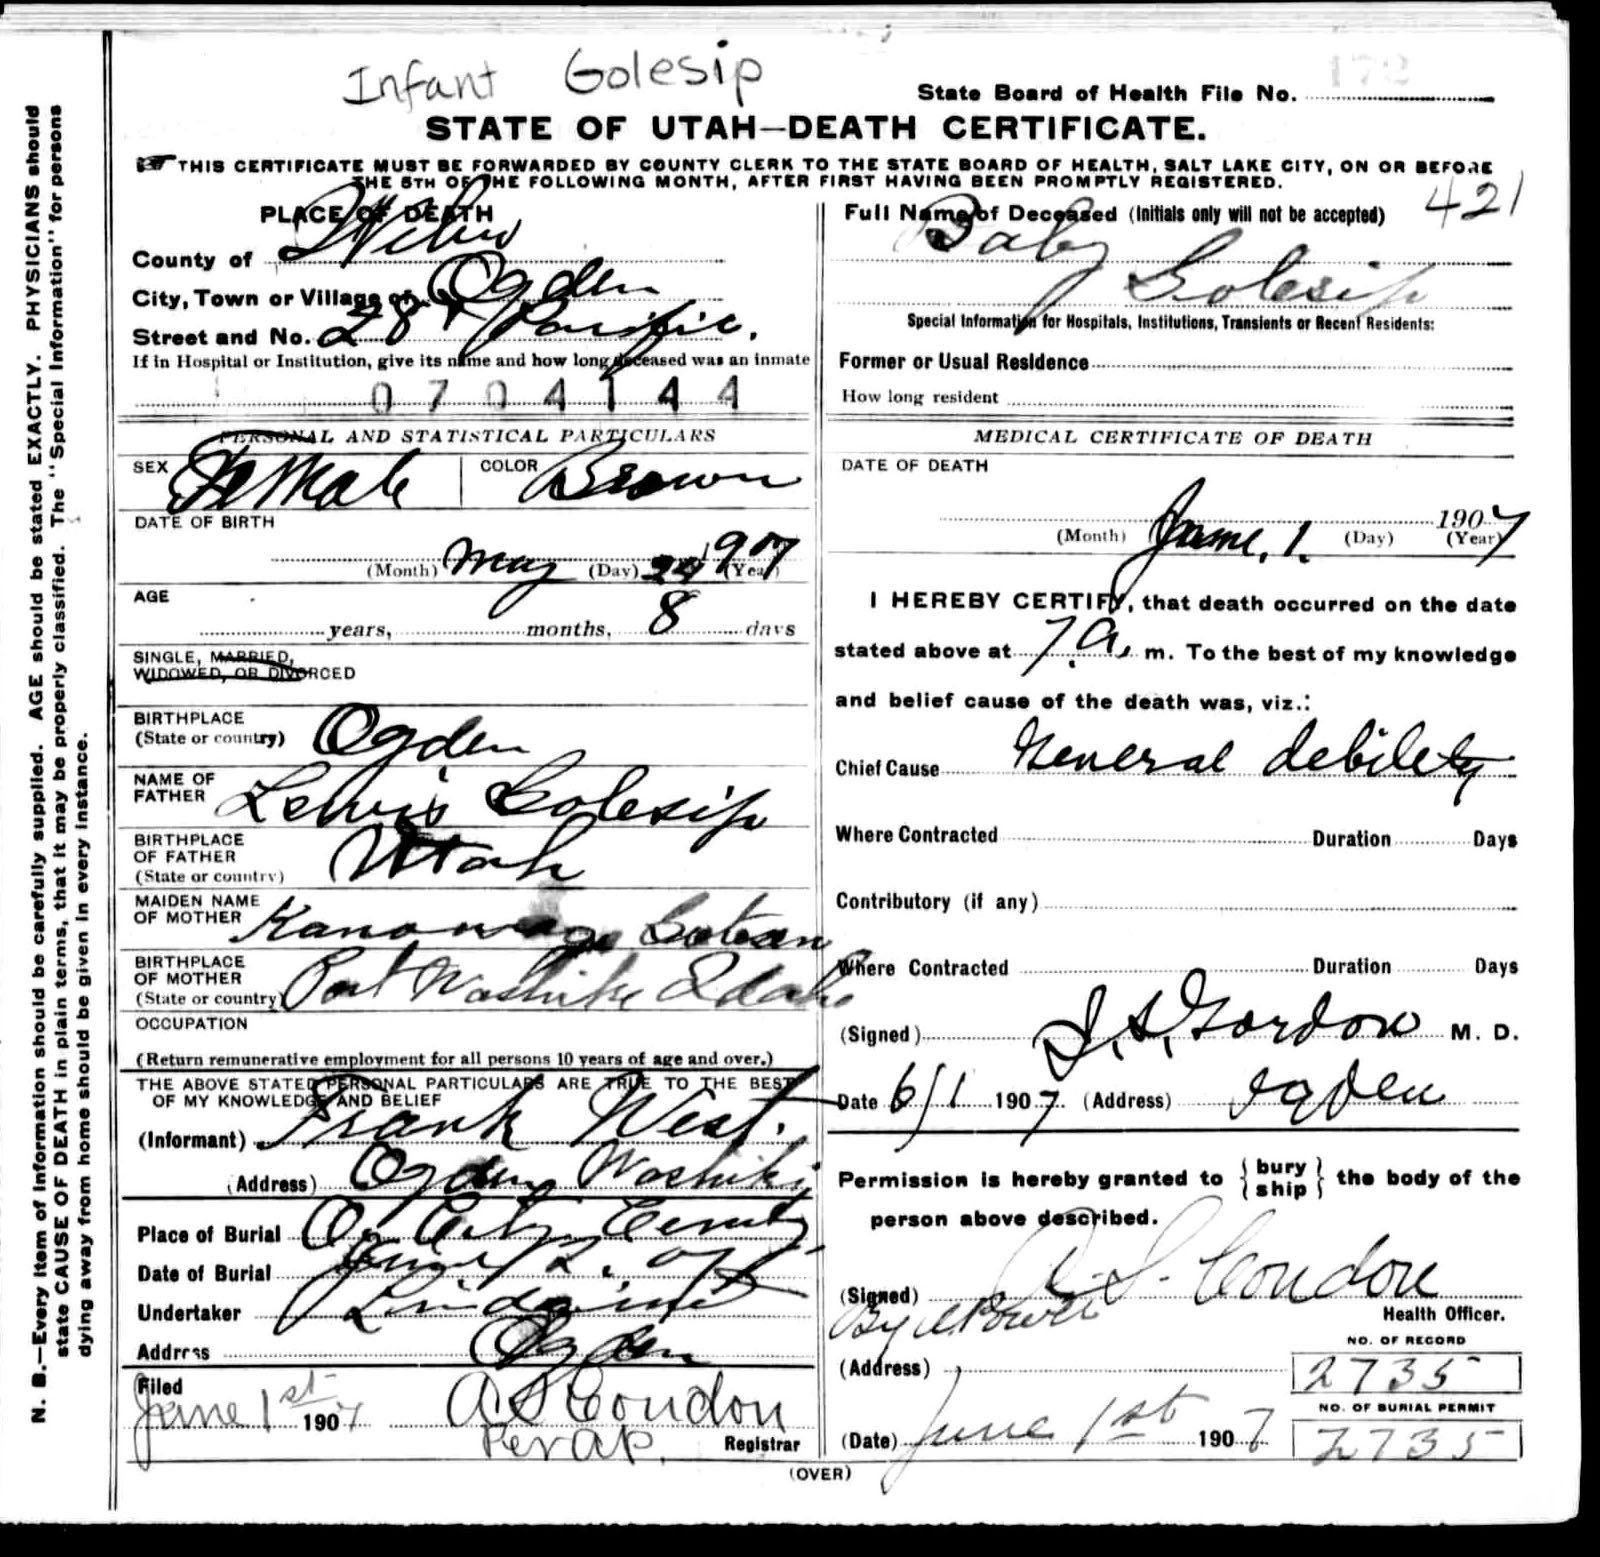 Infant Golesip
172
State Board of Health File No.
STATE OF UTAH—DEATH CERTIFICATE.
THIS CERTIFICATE MUST BE FORWARDED BY COUNTY CLERK TO THE STATE BOARD OF HEALTH, SALT LAKE CITY, ON OR BEFORE
THE 5TH OF THE FOLLOWING MONTH, AFTER FIRST HAVING BEEN PROMPTLY REGISTERED.
N. B.—Every item of information should be carefully supplied. AGE should be stated EXACTLY. PHYSICIANS should
state CAUSE OF DEATH in plain terms, that it may be properly classified. The "Special Information" for persons
dying away from home should be given in every instance.
PLACE OF DEATH
County of Weber
City, Town or Village of Ogden
Street and No. 28 + Pacific.
If in Hospital or Institution, give its name and how long deceased was an inmate
0704144
PERSONAL AND STATISTICAL PARTICULARS
SEX Female COLOR Brown
DATE OF BIRTH
(Month) May (Day) 24 1907 (Year)
AGE
years, months, 8 days
SINGLE, MARRIED,
WIDOWED, OR DIVORCED
BIRTHPLACE
(State or country) Ogden
NAME OF
FATHER Lewis Golesip
BIRTHPLACE
OF FATHER
(State or country) Utah
MAIDEN NAME
OF MOTHER
BIRTHPLACE
OF MOTHER
(State or country) Washikie Idaho
OCCUPATION
(Return remunerative employment for all persons 10 years of age and over.)
THE ABOVE STATED PERSONAL PARTICULARS ARE TRUE TO THE BEST
OF MY KNOWLEDGE AND BELIEF
(Informant) Frank West.
(Address) Washiki
Place of Burial Og City Cemty
Date of Burial June / 2. 07
Undertaker Lindquist
Address Ogden
Filed
June 1st 1907 A S Condon
Per AP. Registrar
421
Full Name of Deceased (Initials only will not be accepted)
Baby
Golesip
Special Information for Hospitals, Institutions, Transients or Recent Residents:
Former or Usual Residence
How long resident
MEDICAL CERTIFICATE OF DEATH
DATE OF DEATH
1907
(Month) June, 1. (Day) (Year)
I HEREBY CERTIFY, that death occurred on the date
stated above at 7 a. m. To the best of my knowledge
and belief cause of the death was, viz.:
Chief Cause General debility
Where Contracted Duration Days
Contributory (if any)
Where Contracted Duration Days
(Signed) Gordon M. D.
Date 6/1 1907 (Address) Ogden
Permission is hereby granted to {bury ship} the body of the
person above described.
(Signed) A. S. Condon
By A. Power Health Officer.
NO. OF RECORD
(Address) 2735
NO. OF BURIAL PERMIT
(Date) June 1st 1907 2735
(OVER)